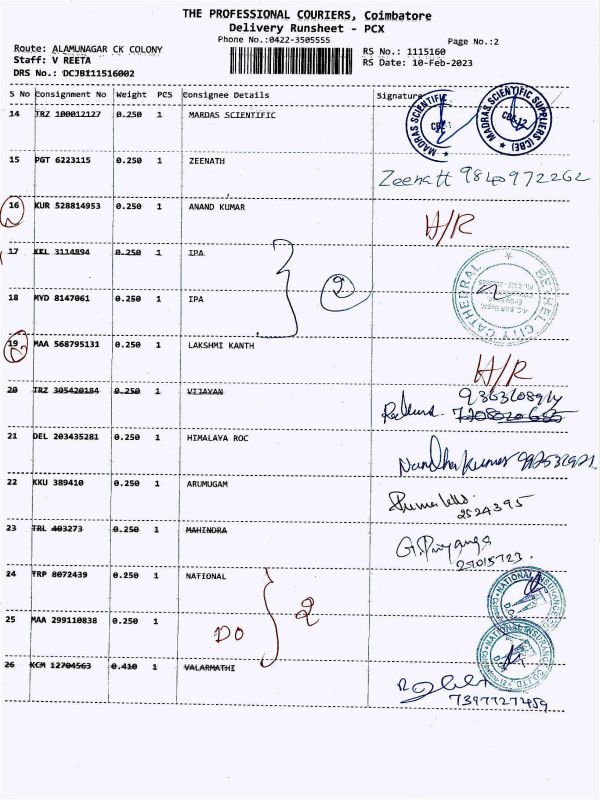 THE PROFESSIONAL COURIERS, Coimbatore
Delivery Runsheet - PCX
Phone No.:0422-3505555
Page No.:2
Route: ALAMUNAGAR CK COLONY
RS No.: 1115160
Staff: V REETA
RS Date: 10-Feb-2023
DRS No.: DCJBI11516002
S No Consignment No Weight PCS Consignee Details Signature
14 TRZ 100012127 0.250 1 MARDAS SCIENTIFIC
MADRAS SCIENTIFIC SUPPLIERS (CBE)
15 PGT 6223115 0.250 1 ZEENATH Zeenatt 9840972262
16 KUR 528814953 0.250 1 ANAND KUMAR H/R
17 KKL 3114894 0.250 1 IPA
2
BETHEL CITY CATHEDRAL
18 MYD 8147061 0.250 1 IPA
19 MAA 568795131 0.250 1 LAKSHMI KANTH H/R
20 TRZ 305420184 0.250 1 VIJAYAN
21 DEL 203435281 0.250 1 HIMALAYA ROC Nandha Kumar
22 KKU 389410 0.250 1 ARUMUGAM
2524395
23 TRL 403273 0.250 1 MAHINDRA G. Priyanga
27015723.
24 TRP 8072439 0.250 1 NATIONAL
NATIONAL INSURANCE CO LTD
2
25 MAA 299110838 0.250 1
DO
NATIONAL INSURANCE CO LTD
26 KCM 12704563 0.410 1 VALARMATHI
7397727459